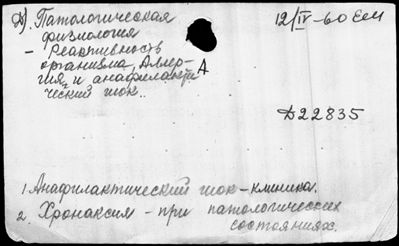 Д). Патологическая 12/IV-60
физиология
- Реактивность
организма, Аллер-
гия, и анафилакти А
ческий шок..
Д22835
1. Анафилактический шок - клиника.
2. Хронаксия - при патологических
состояниях.